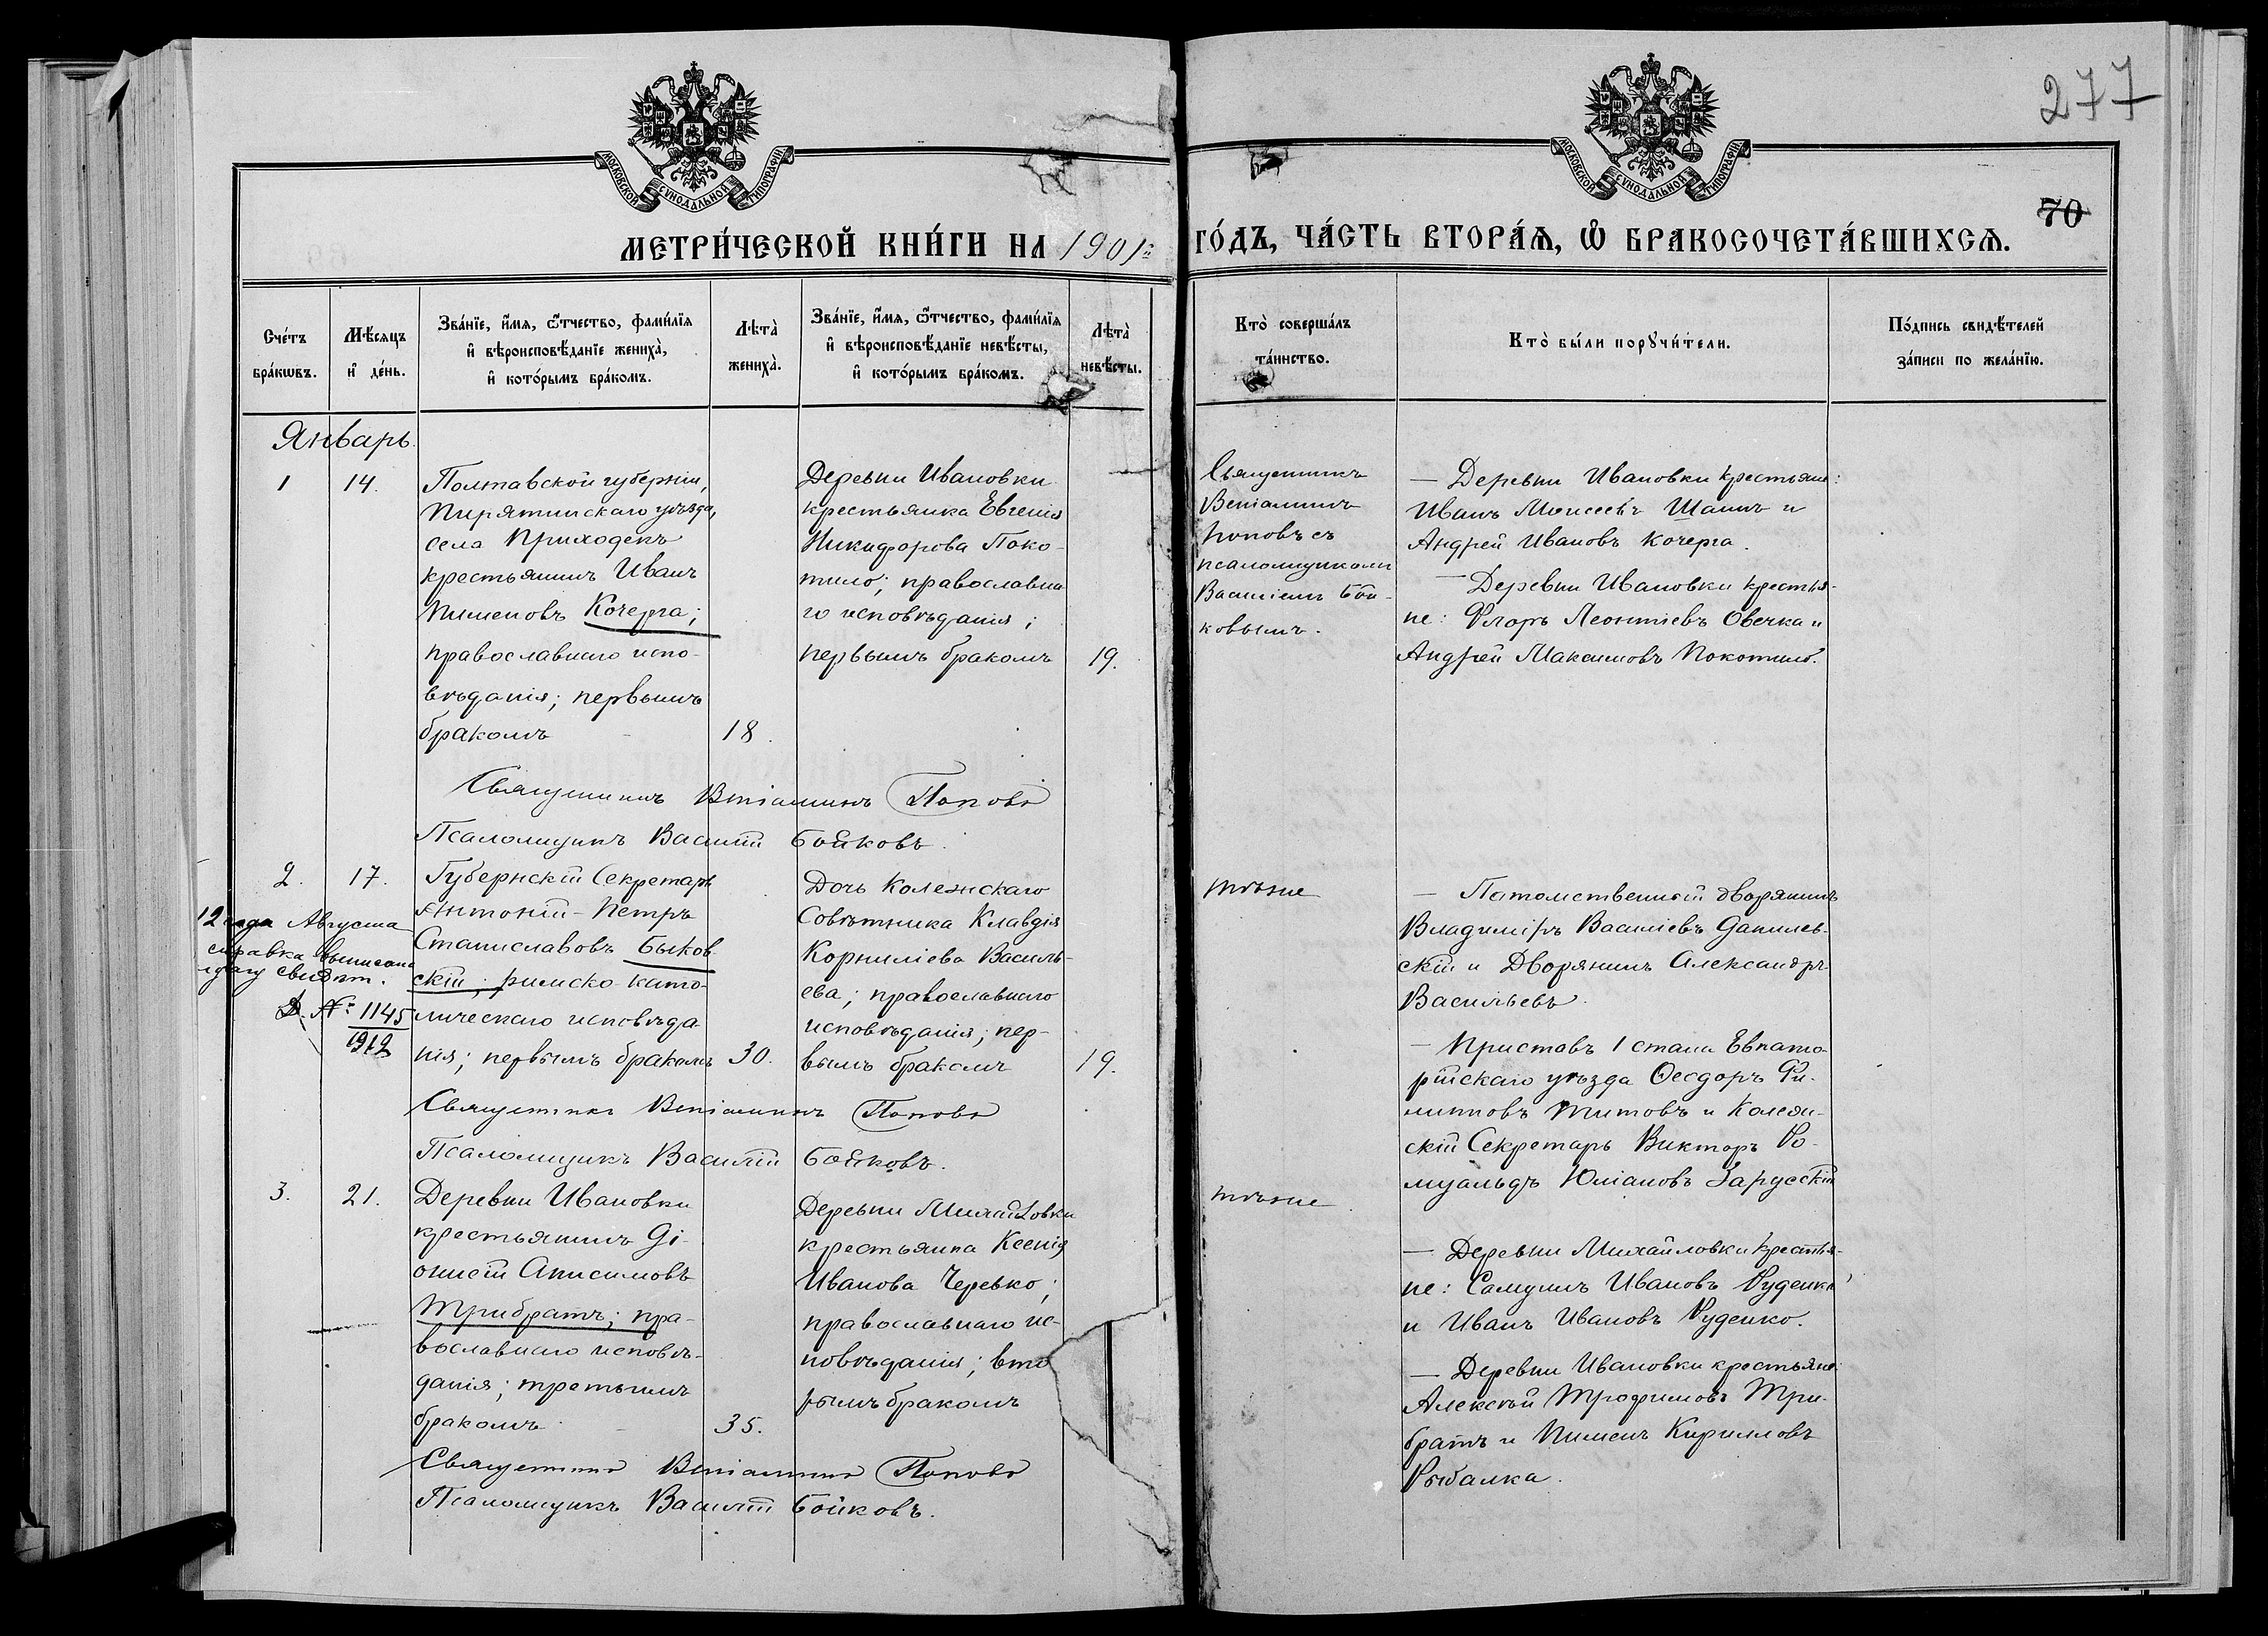 277
70
МОСКОВСКОЙ СУНОДАЛЬНОЙ ТИПОГРАФІИ
МОСКОВСКОЙ СУНОДАЛЬНОЙ ТИПОГРАФІИ
МЕТРИ́ЧЕСКОЙ КНИ́ГИ НА 1901й ГО́ДЪ, ЧА́СТЬ ВТОРА́Ѧ, Ѽ БРАКОСОЧЕТА́ВШИХСѦ.
Сче́тъ бра́кѡвъ.
Мѣ́сяцъ и де́нь.
Зва́нїе, и́мѧ, ѻ́тчество, фами́лїѧ
и҆ вѣроисповѣ́данїе жениха̀,
и҆ кото́рымъ бра́комъ.
Лѣта̀ жениха̀.
Зва́нїе, и́мѧ, ѻ́тчество, фами́лїѧ
и҆ вѣроисповѣ́данїе невѣ́сты,
и҆ кото́рымъ бра́комъ.
Лѣта̀ невѣ́сты.
Кто̀ соверша́лъ
та́инство.
Кто̀ бы́ли порꙋчи́тели.
По́дпись свидѣ́телей
за́писи по жела́нїю.
Январь.
1
14.
Полтавской губерніи,
Пирятинскаго уѣзда,
села Приходекъ
крестьянинъ Иванъ
Пименовъ Кочерга;
православнаго испо-
вѣданія; первымъ
бракомъ
18.
Деревни Ивановки
крестьянка Евгенія
Никифорова Поко-
тило; православна
го исповѣданія;
первымъ бракомъ
19.
Священникъ
Веніаминъ
Поповъ съ
псаломщикомъ
Василіемъ Бой-
ковымъ.
— Деревни Ивановки крестьяне:
Иванъ Моисеевъ Шаинъ и
Андрей Ивановъ Кочерга.
— Деревни Ивановки крестья-
не: Флоръ Леонтіевъ Овечка и
Андрей Максимовъ Покотило.
Священникъ Веніаминъ Поповъ
Псаломщикъ Василій Бойковъ.
2.
17.
12 года Августа
справка выписана
свидѣт.
№ 1145
1912
Губернскій Секретарь
Антоній-Петръ
Станиславовъ Быков-
скій; римско-като-
лическаго исповѣда-
нія; первымъ бракомъ
30.
Дочь Колежскаго
Совѣтника Клавдія
Корниліева Василь-
ева; православнаго
исповѣданія; пер-
вымъ бракомъ
19.
тѣже
— Потомственный дворянинъ
Владиміръ Василіевъ Данилев-
скій и Дворянинъ Александръ
Васильевъ.
— Приставъ 1 стана Евпато-
рійскаго уѣзда Ѳеодоръ Фи-
липповъ Титовъ и Колеж-
скій Секретарь Викторъ Ро-
муальдъ Юліановъ Зарусскій
Священникъ Веніаминъ Поповъ
Псаломщикъ Василій Бойковъ.
3.
21.
Деревни Ивановки
крестьянинъ Ді-
онисій Анисимовъ
Трибратъ; пра-
вославнаго исповѣ-
данія; третьимъ
бракомъ
35.
Деревни Михайловки
крестьянка Ксенія
Иванова Черевко;
православнаго ис-
повѣданія; вто
рымъ бракомъ
тѣже
— Деревни Михайловки крестья-
не: Самуилъ Ивановъ Руденко
и Иванъ Ивановъ Руденко.
— Деревни Ивановки крестьяне:
Алексѣй Трофимовъ Три-
братъ и Пименъ Кирилловъ
Рыбалка.
Священникъ Веніаминъ Поповъ
Псаломщикъ Василій Бойковъ.